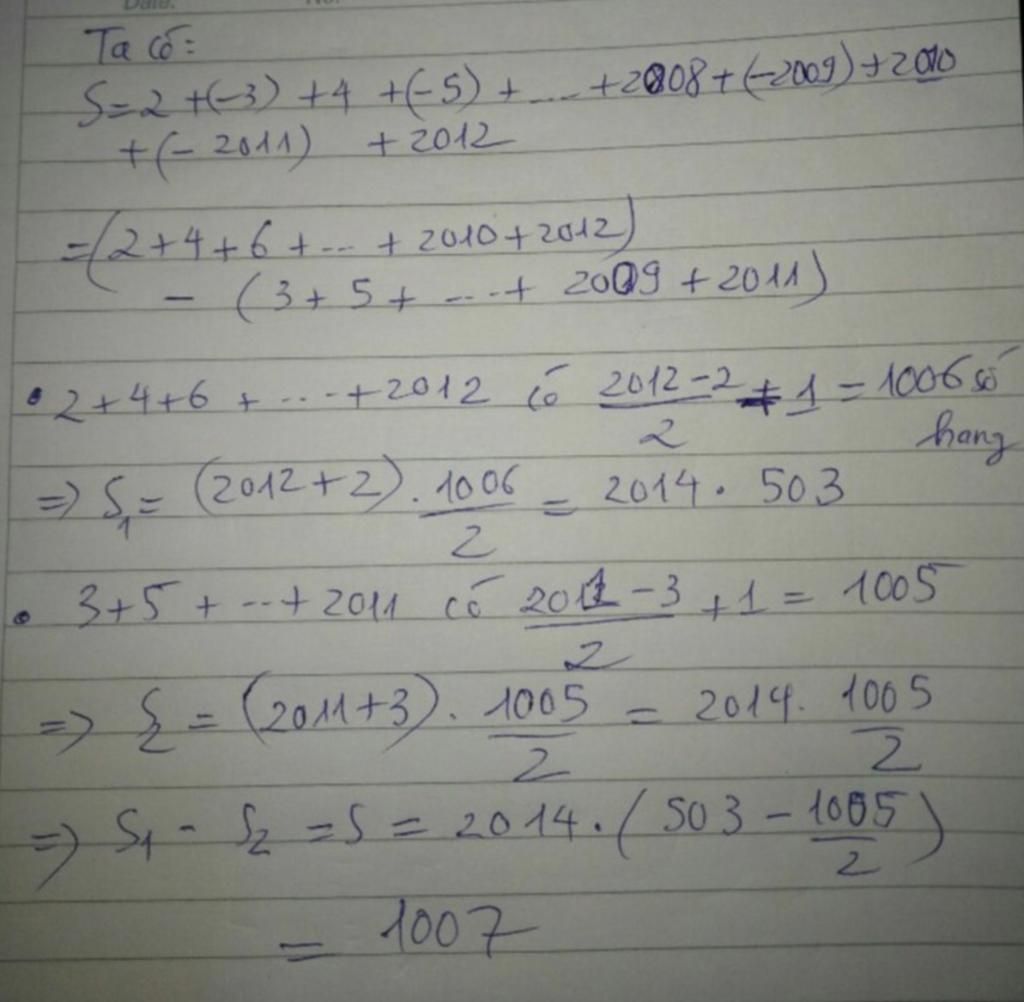 Date. No.
Ta có:
S=2 +(-3) +4 +(-5) + .... +2008+(-2009)+2010
+(-2011) +2012
=(2+4+6+...+2010+2012)
- (3+5+....+ 2009+2011)
• 2+4+6+....+2012 có (2012-2)/2 + 1 = 1006 số
hang
=> S₁= (2012+2). 1006/2 = 2014. 503
• 3+5+...+2011 có (2011-3)/2 +1= 1005
=> S₂ = (2011+3). 1005/2 = 2014. 1005/2
=> S₁ - S₂ =S= 2014.(503-1005/2)
= 1007